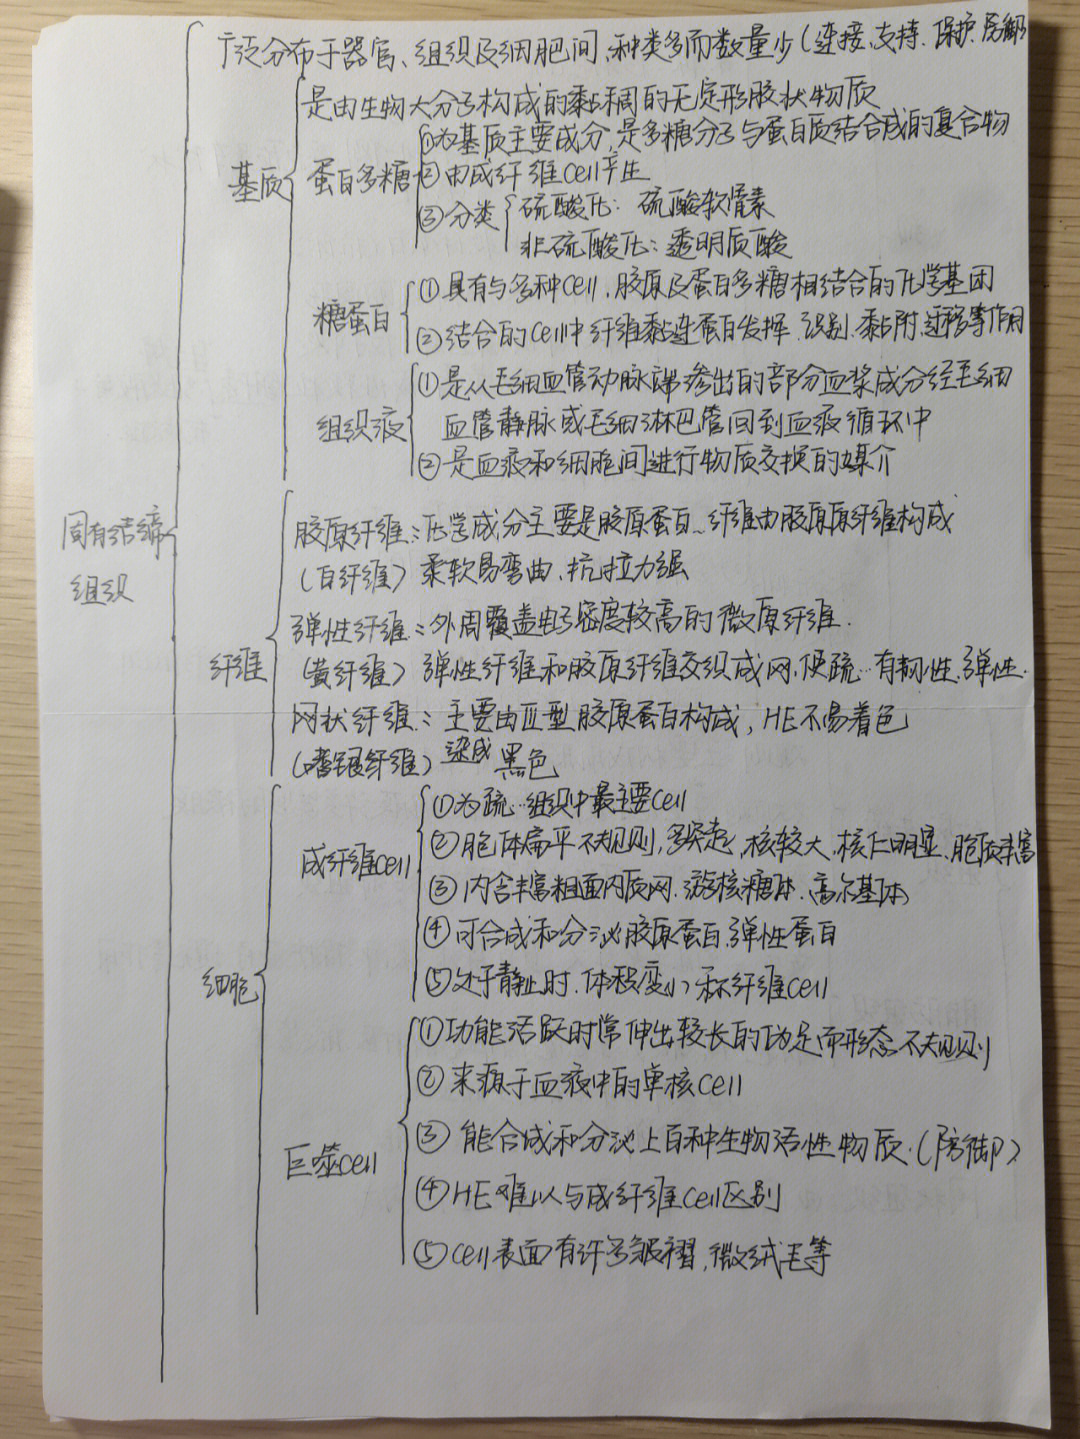 广泛分布于器官、组织及细胞间,种类多而数量少(连接.支持.保护.防御
是由生物大分子构成的黏稠的无定形胶状物质
基质
蛋白多糖
①为基质主要成分,是多糖分子与蛋白质结合成的复合物
②由成纤维cell产生
③分类
硫酸化: 硫酸软骨素
非硫酸化:透明质酸
糖蛋白
①具有与多种cell.胶原及蛋白多糖相结合的化学基团
②结合的cell中纤维黏连蛋白发挥.识别.黏附.迁移等作用
组织液
①是从毛细血管动脉端渗出的部分血浆成分经毛细
血管静脉或毛细淋巴管回到血液循环中
②是血液和细胞间进行物质交换的媒介
固有结缔
组织
纤维
胶原纤维:化学成分主要是胶原蛋白..纤维由胶原原纤维构成
(白纤维) 柔软易弯曲.抗拉力强
弹性纤维:外周覆盖电子密度较高的微原纤维.
(黄纤维) 弹性纤维和胶原纤维交织成网.使疏…有韧性.弹性.
网状纤维: 主要由Ⅲ型胶原蛋白构成,HE不易着色
(嗜银纤维) 染成黑色
细胞
成纤维cell
①为疏…组织中最主要cell
②胞体扁平不规则,多突起,核较大.核仁明显.胞质丰富
③内含丰富粗面内质网.游离核糖体.高尔基体
④可合成和分泌胶原蛋白.弹性蛋白
⑤处于静止时.体积变小称纤维cell
巨噬cell
①功能活跃时常伸出较长的伪足而形态不规则
②来源于血液中的单核cell
③能合成和分泌上百种生物活性物质.(防御)
④HE难以与成纤维cell区别
⑤cell表面有许多皱褶,微绒毛等